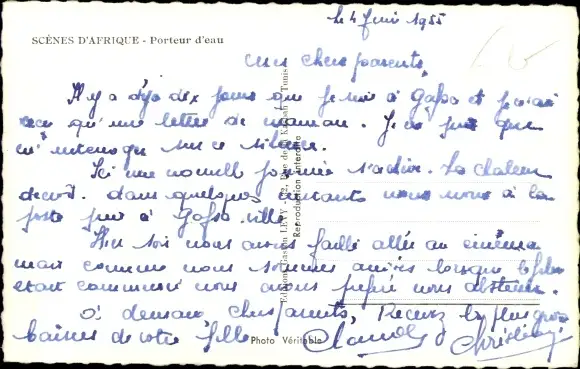 le 4 Juin 1955
SCÈNES D'AFRIQUE - Porteur d'eau
Mes chers parents,
Il y a déjà dix jours que je suis à Gafsa et je n'ai
reçu qu'une lettre de maman. Je ne puis que
m'interroger sur ce silence.
Ici une nouvelle journée s'achève. La chaleur
décroît. dans quelques instants nous irons à la
poste puis à Gafsa-ville.
Hier soir nous avons failli aller au cinéma
mais comme nous sommes arrivés lorsque le film
était commencé nous avons préféré nous abstenir.
à demain chers parents, Recevez les plus gros
baisers de votre fille
Christian
Photo Véritable
Edition Gaston LEVY - Rue de la Tunis
Reproduction interdite